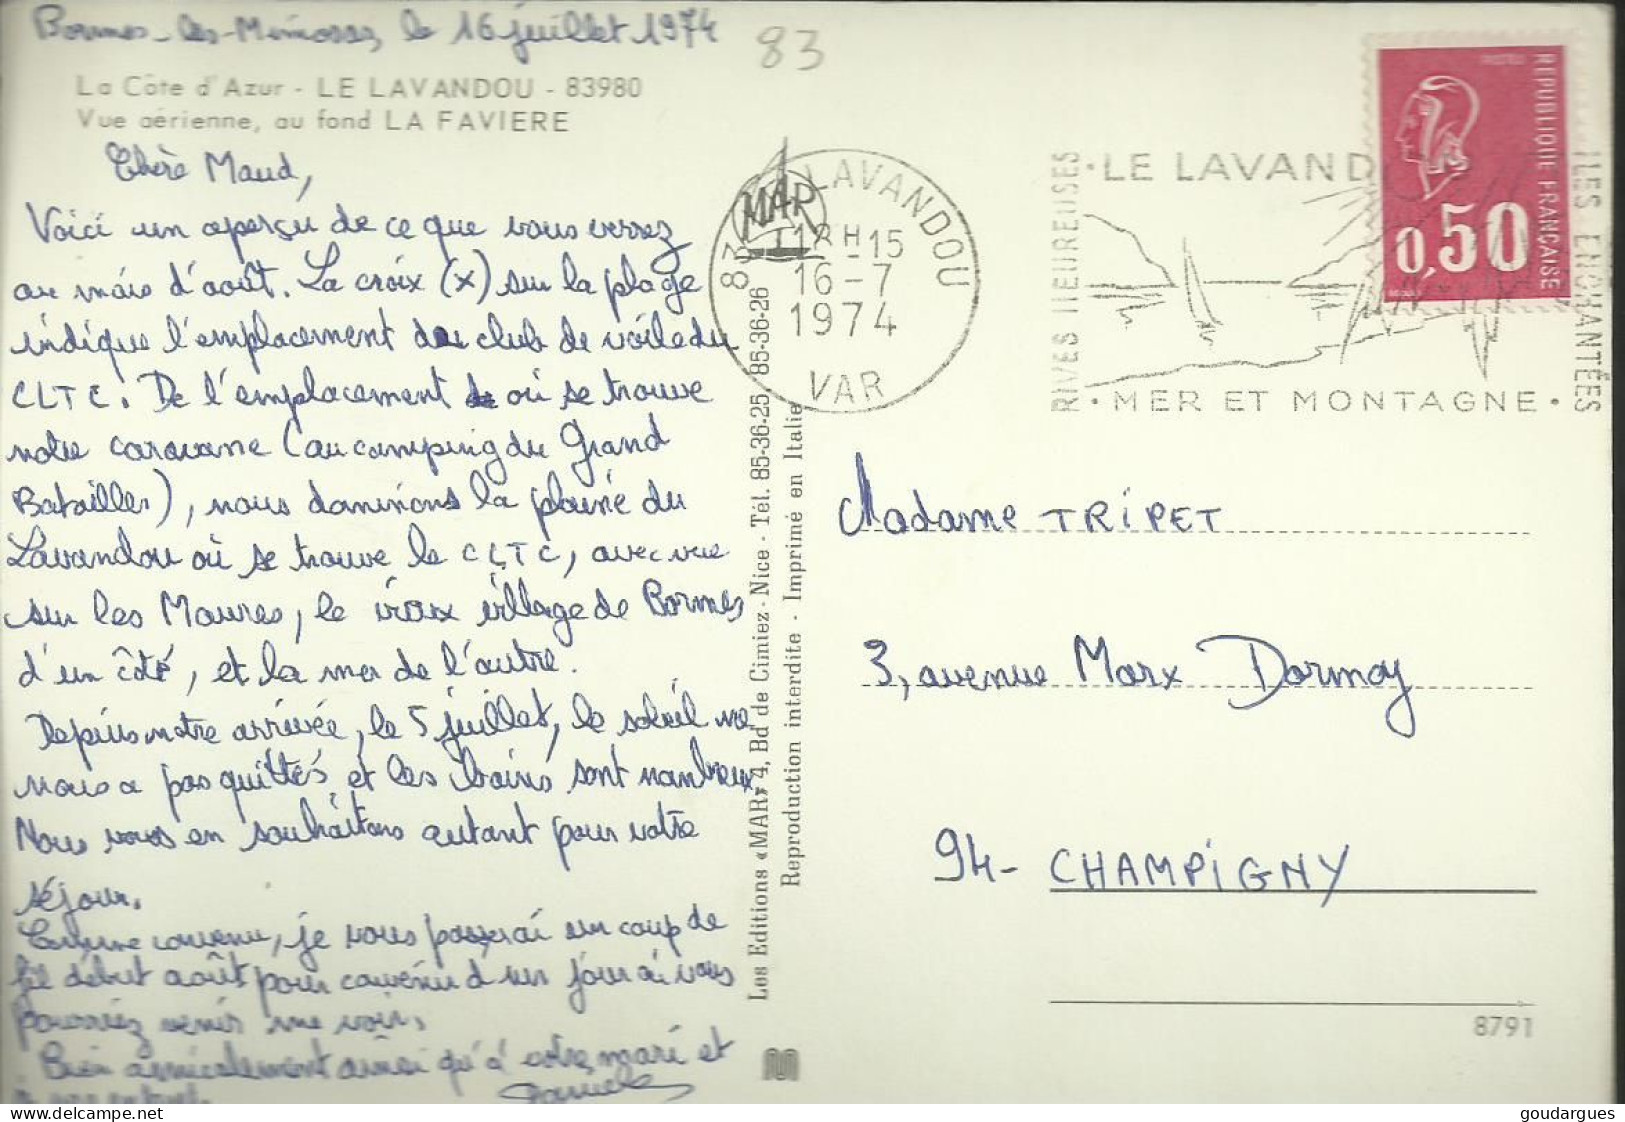 Bormes-les-Mimosas, le 16 juillet 1974
83
La Côte d'Azur - LE LAVANDOU - 83980
Vue aérienne, au fond LA FAVIERE
Chère Maud,
Voici un aperçu de ce que vous verrez
au mois d'août. La croix (x) sur la plage
indique l'emplacement du club de voile du
CLTC. De l'emplacement où se trouve
notre caravane (au camping du Grand
Batailler), nous dominons la plaine du
Lavandou où se trouve le CLTC, avec vue
sur les Maures, le vieux village de Bormes
d'un côté, et la mer de l'autre.
Depuis notre arrivée, le 5 juillet, le soleil ne
nous a pas quittés et les bains sont nombreux.
Nous vous en souhaitons autant pour votre
séjour.
Comme convenu, je vous passerai un coup de
fil début août pour convenir d'un jour où vous
pourriez venir me voir.
Bien amicalement ainsi qu'à votre mari et
Les Editions «MAR» 4, Bd de Cimiez - Nice - Tél. 85-36-25 85-36-26
Reproduction interdite - Imprimé en Italie
MAR
83 LAVANDOU
18H-15
16-7
1974
VAR
RIVES HEUREUSES
• LE LAVAND
ILES ENCHANTÉES
• MER ET MONTAGNE •
REPUBLIQUE FRANÇAISE
0,50
Madame TRIPET
3, avenue Marx Dormoy
94- CHAMPIGNY
8791
www.delcampe.net
goudargues